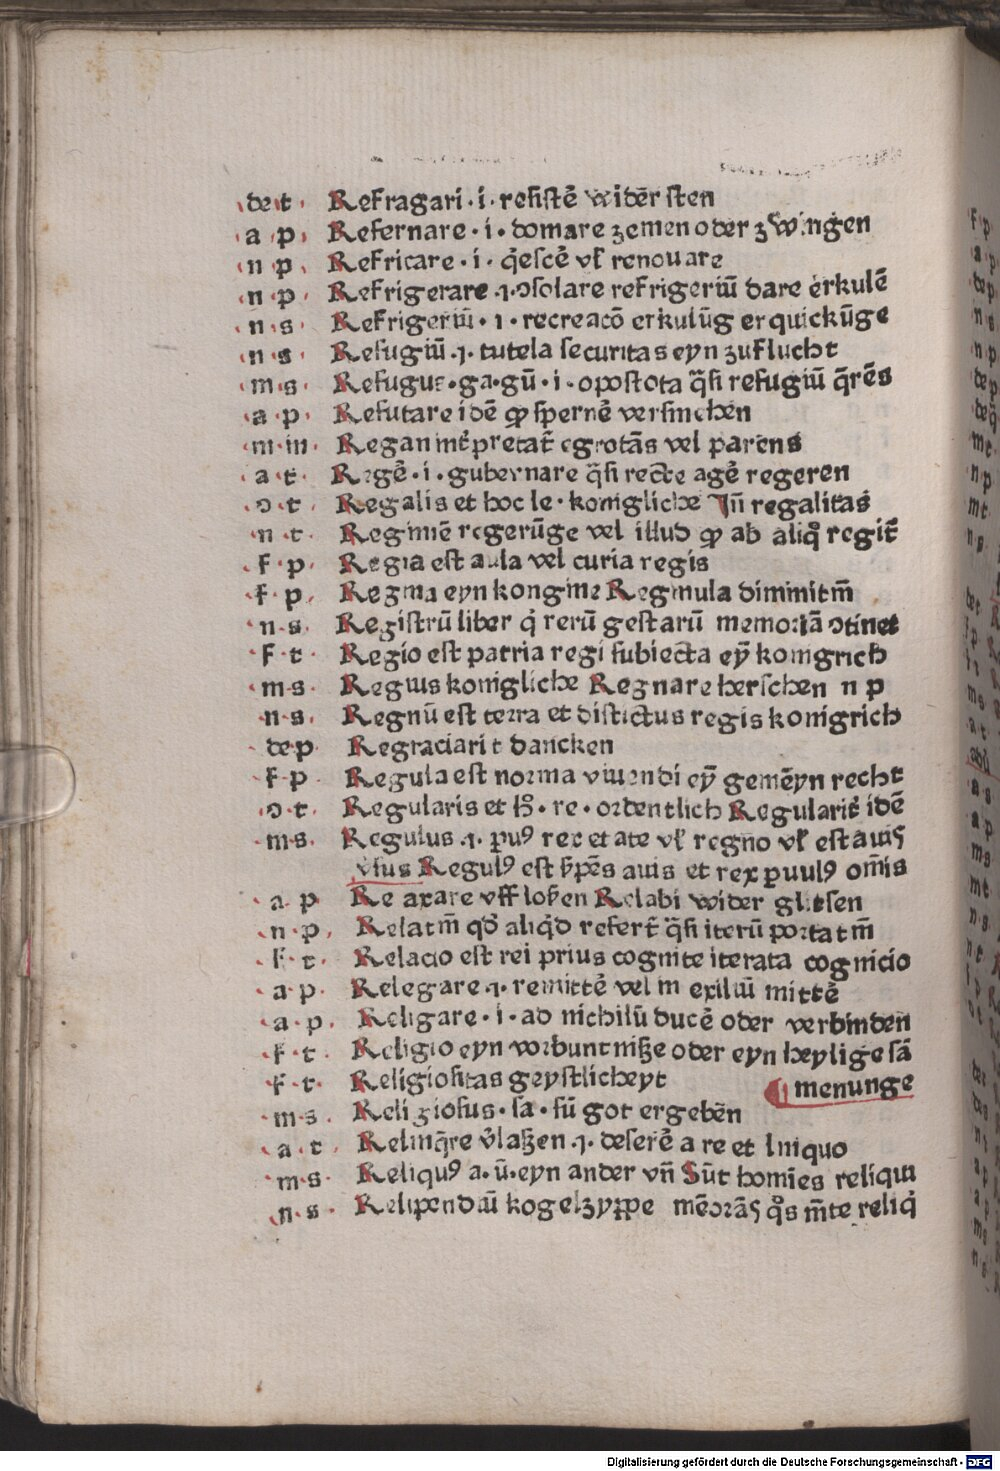 de t Refragari · i · resistē widēr sten
a p Refernare · i · domare zemen oder zwingen
n p Refricare · i · q̇escē vl̄ renouare
n p Refrigerare ·ı· ɔsolare refrigeriū dare erkulē
n s Refrigeriū · ı · recreacō erkulūg er quickūge
n s Refugiū ·ı· tutela securitas eyn zuflucht
m s Refugus · ga · gū · i · opostota q̄si refugiū q̄rēs
a p Refutare idē ꝙ spernē versmehen
m m Regan int̄pretat̄ egrotās vel parens
a t Regē · i · gubernare q̄si recte agē regeren
ɔ t Regalis et hoc le · konigliche Jn̄ regalitas
n t Regimē regerūge vel illud ꝙ ab aliqͦ regit̄
f p Regia est aula vel curia regis
f p Regina eyn kongine Reginula diminitm̄
n s Registrū liber q̇ rerū gestarū memoriā ɔtinet
f t Regio est patria regi subiecta ey̅ konigrich
m s Regius konigliche Regnare herschen n p
n s Regnū est terra et districtus regis konigrich
de p Regraciari t dancken
f p Regula est norma viuendi ey̅ gemēyn recht
ɔ t Regularis et hͦ · re · ordentlich Regularit̄ idē
m s Regulus ·ı· puꝰ rex etate vl̄ regno vl̄ est auiſ
vſus Regulꝰ est s̄pēs auis et rex puulꝰ om̄is
a p Re axare vff losen Relabi wider glitsen
n p Relatm̄ qd̄ aliq̇d refert̄ q̄si iterū portatm̄
f t Relacio est rei prius cognite iterata cognicio
a p Relegare ·ı· remittē vel in exiliū mittē
a p Religare · i · ad nichilū ducē oder verbinden
f t Religio eyn vorbuntnisze oder eyn heylige sā
f t Religiositas geystlicheyt menunge
m s Religiosus · sa · sū got ergebēn
a t Relinq̄re v̄laszen ·ı· deserē a re et liniquo
m s Reliquꝰ a · ū · eyn ander vn̄ Sūt homīes reliqui
n s Relipendiū kogelzyppe mēorāſ qͦs m̄te reliq̇
Digitalisierung gefördert durch die Deutsche Forschungsgemeinschaft - DFG